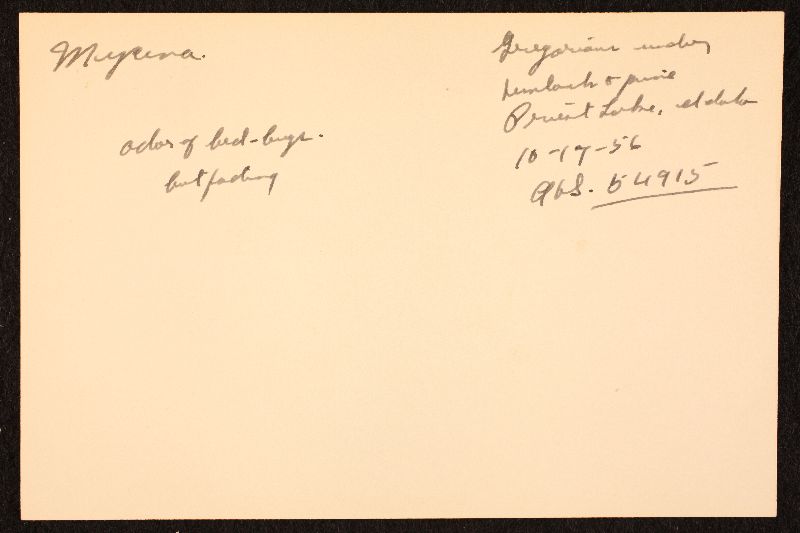 Mycena.
odor of bed-bugs.
but fading
Gregarious under
hemlock & pine
Priest Lake, Idaho
10-17-56
AHS. 54915